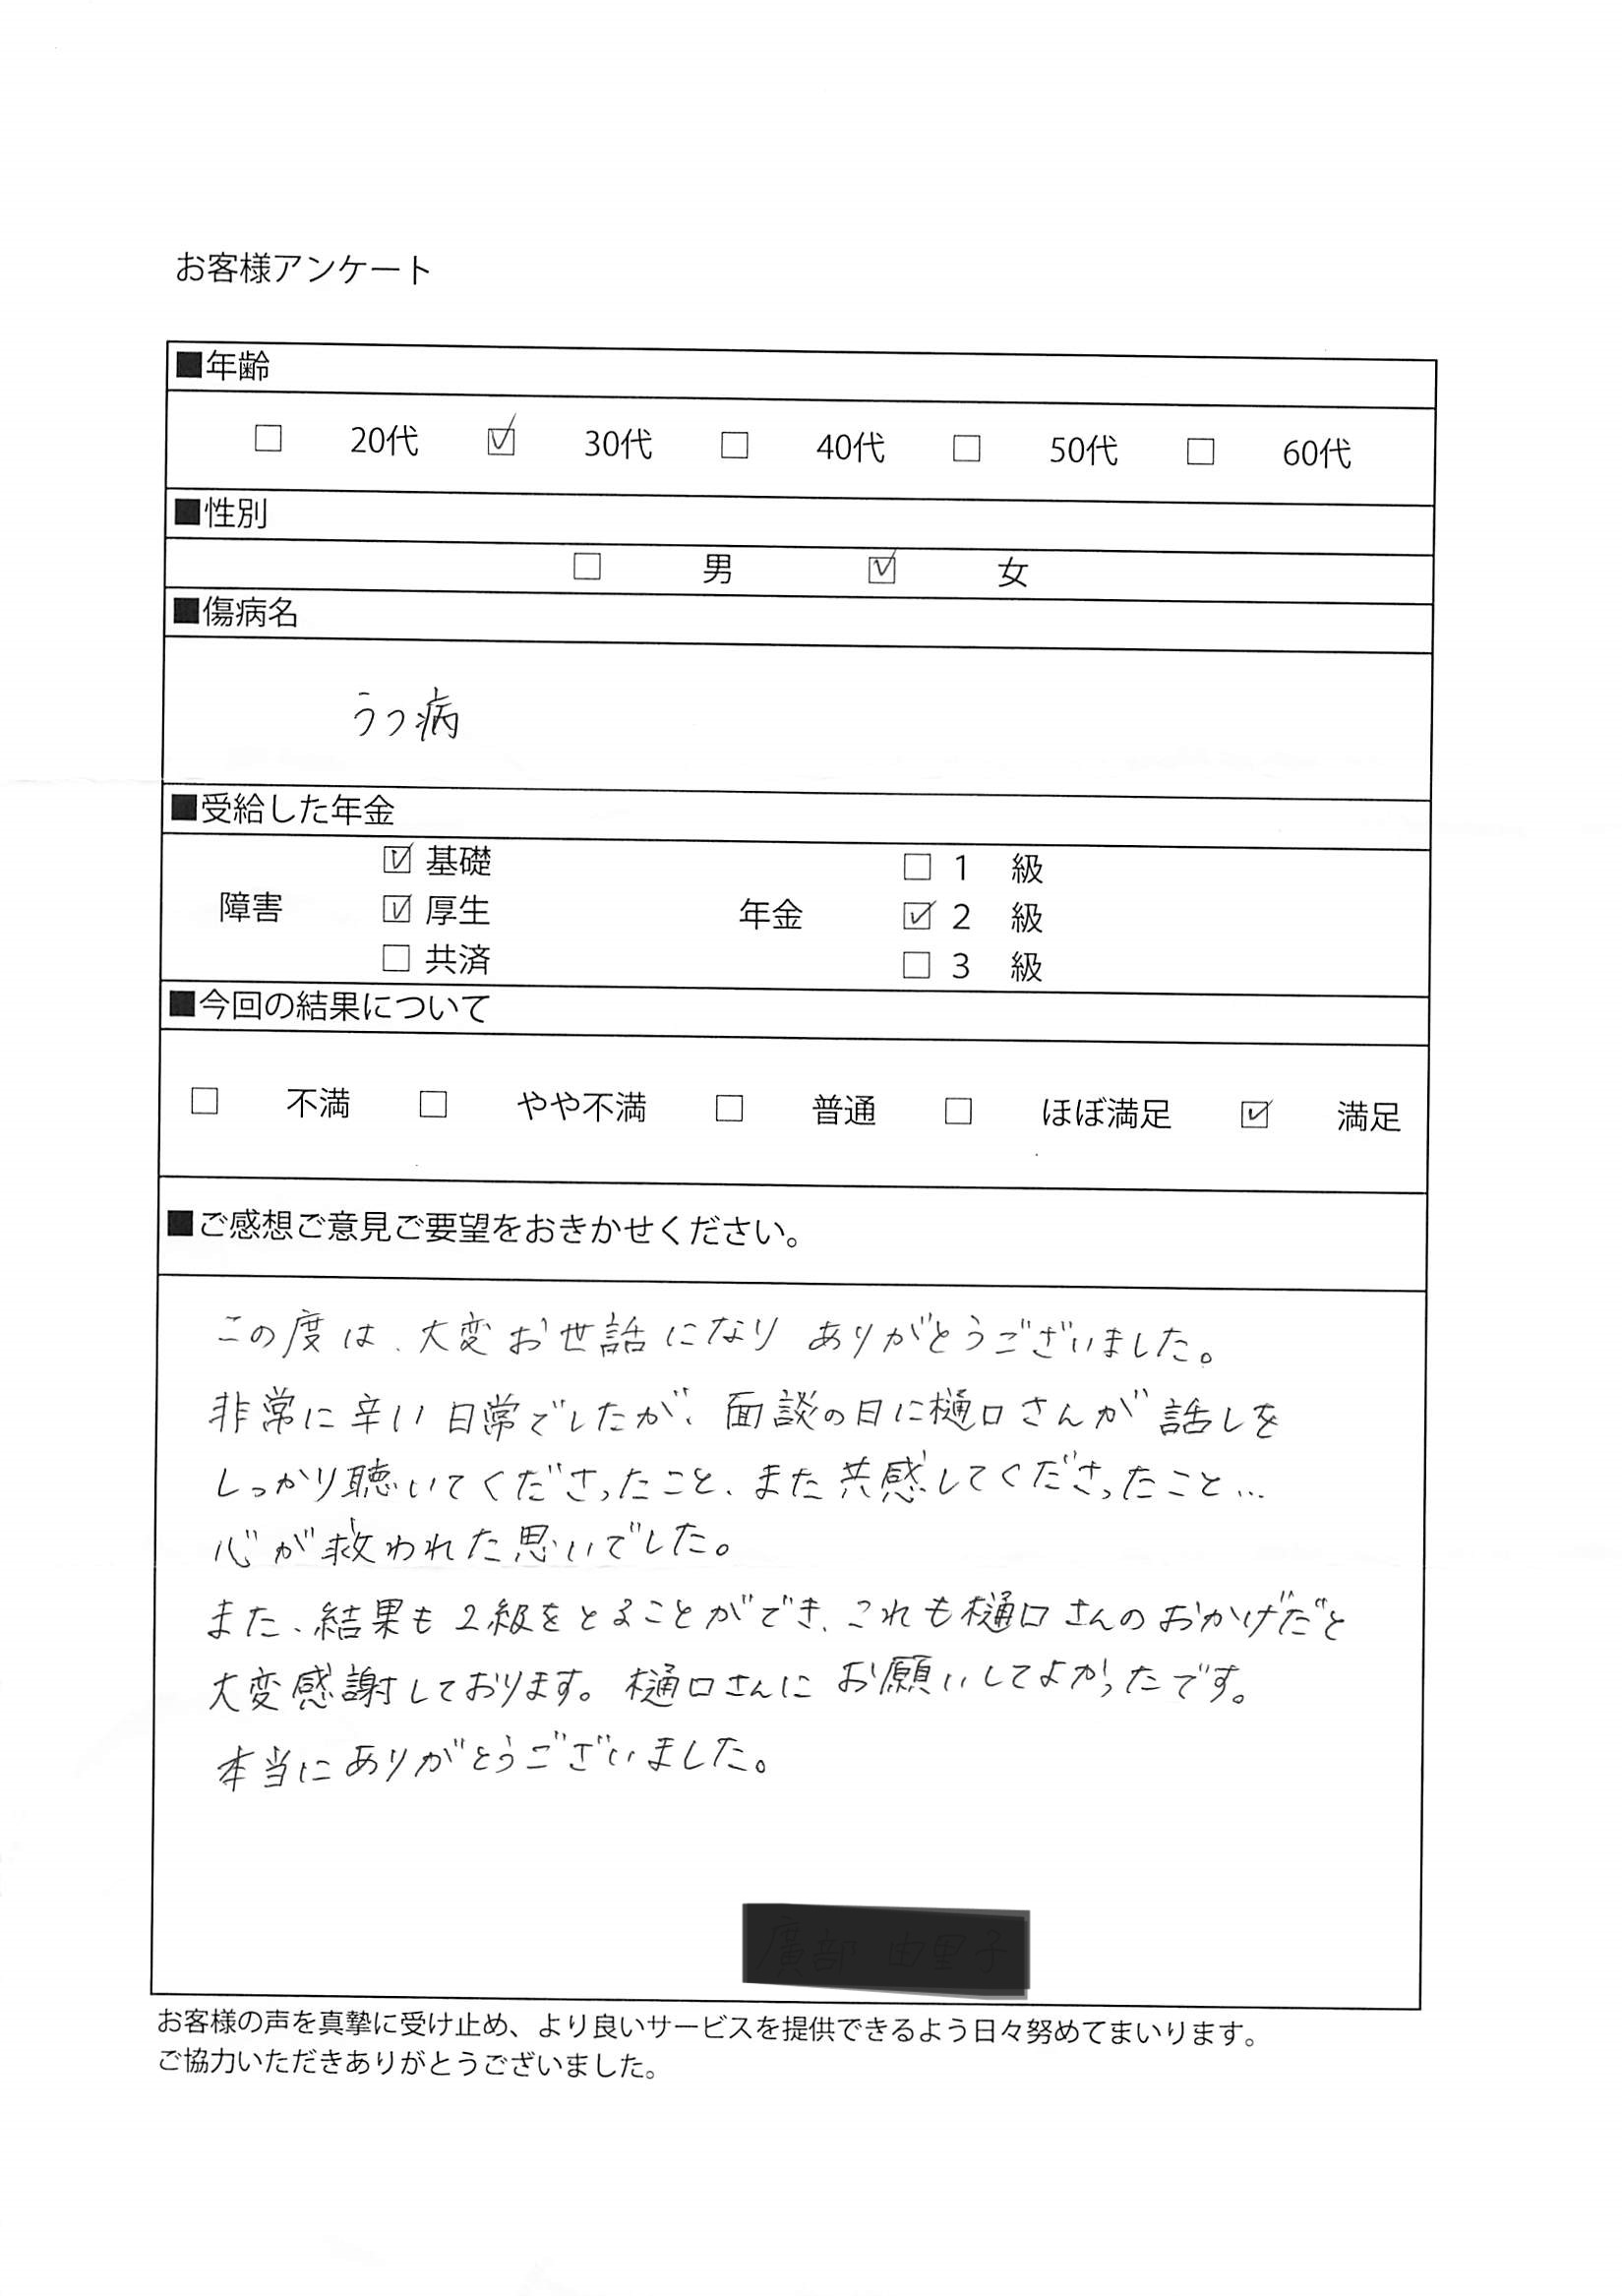 お客様アンケート
■年齢
□ 20代 ☑ 30代 □ 40代 □ 50代 □ 60代
■性別
□ 男 ☑ 女
■傷病名
うつ病
■受給した年金
障害 ☑ 基礎 ☑ 厚生 □ 共済 年金 □ 1 級 ☑ 2 級 □ 3 級
■今回の結果について
□ 不満 □ やや不満 □ 普通 □ ほぼ満足 ☑ 満足
■ご感想ご意見ご要望をおきかせください。
この度は、大変お世話になり ありがとうございました。
非常に辛い日常でしたが、面談の日に樋口さんが話しを
しっかり聴いてくださったこと、また共感してくださったこと…
心が救われた思いでした。
また、結果も2級をとることができ、これも樋口さんのおかげだと
大変感謝しております。樋口さんにお願いしてよかったです。
本当にありがとうございました。
お客様の声を真摯に受け止め、より良いサービスを提供できるよう日々努めてまいります。
ご協力いただきありがとうございました。